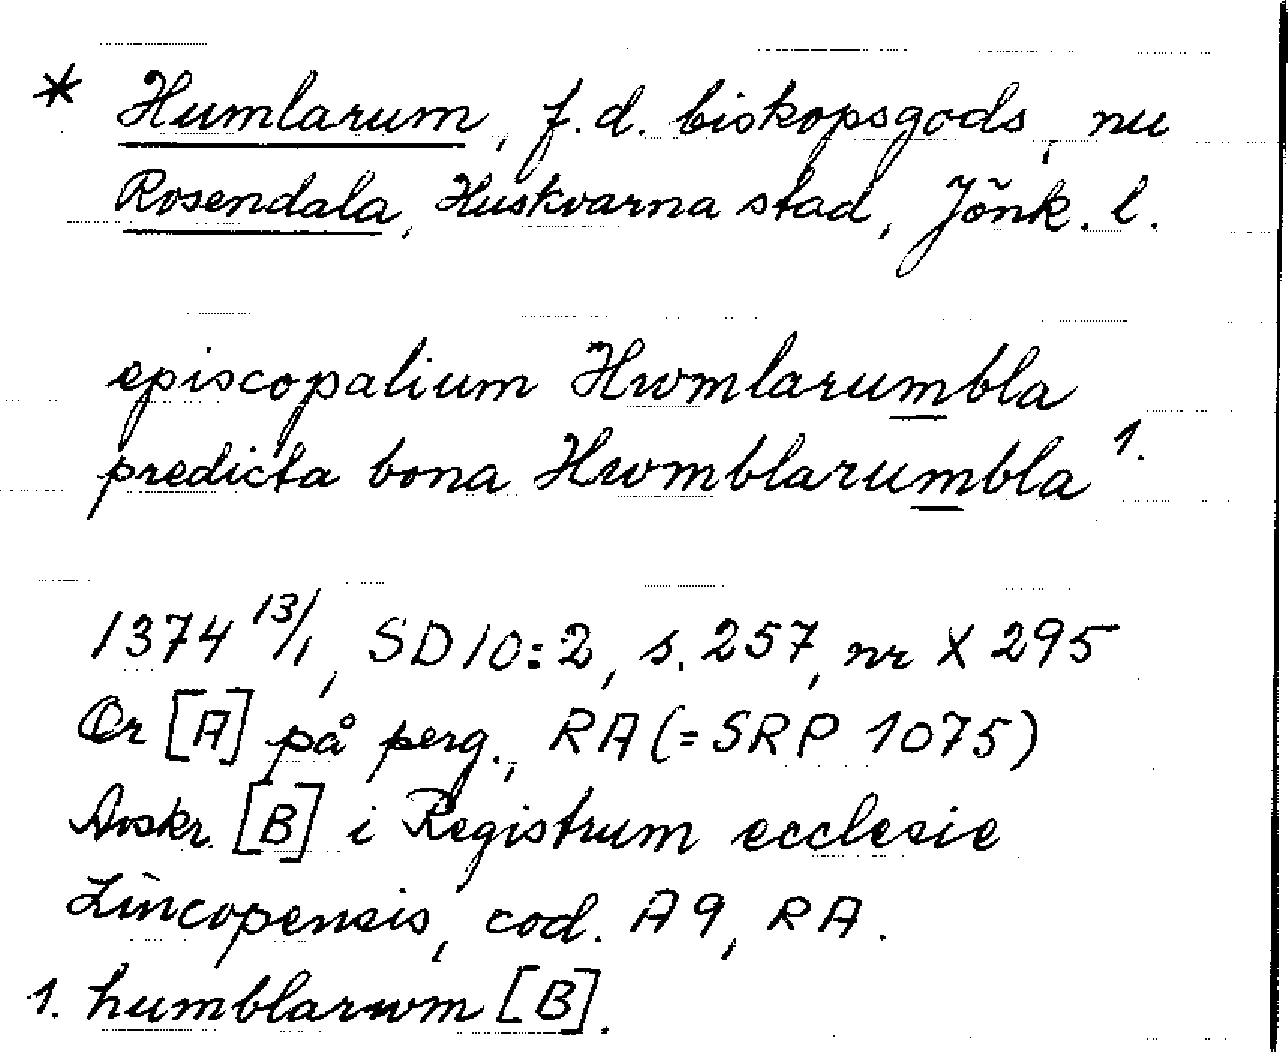 * Humlarum, f.d. biskopsgods, nu
Rosendala, Huskvarna stad, Jönk. l.
episcopalium Hwmlarumbla
predicta bona Hwmblarumbla 1.
1374 13/1, SD 10:2, s. 257, nr X 295
Or [A] på perg., RA (= SRP 1075)
Avskr. [B] i Registrum ecclesie
Lincopensis, cod. A 9, RA.
1. humblarwm [B].